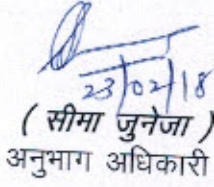 23/02/18
( सीमा जुनेजा )
अनुभाग अधिकारी